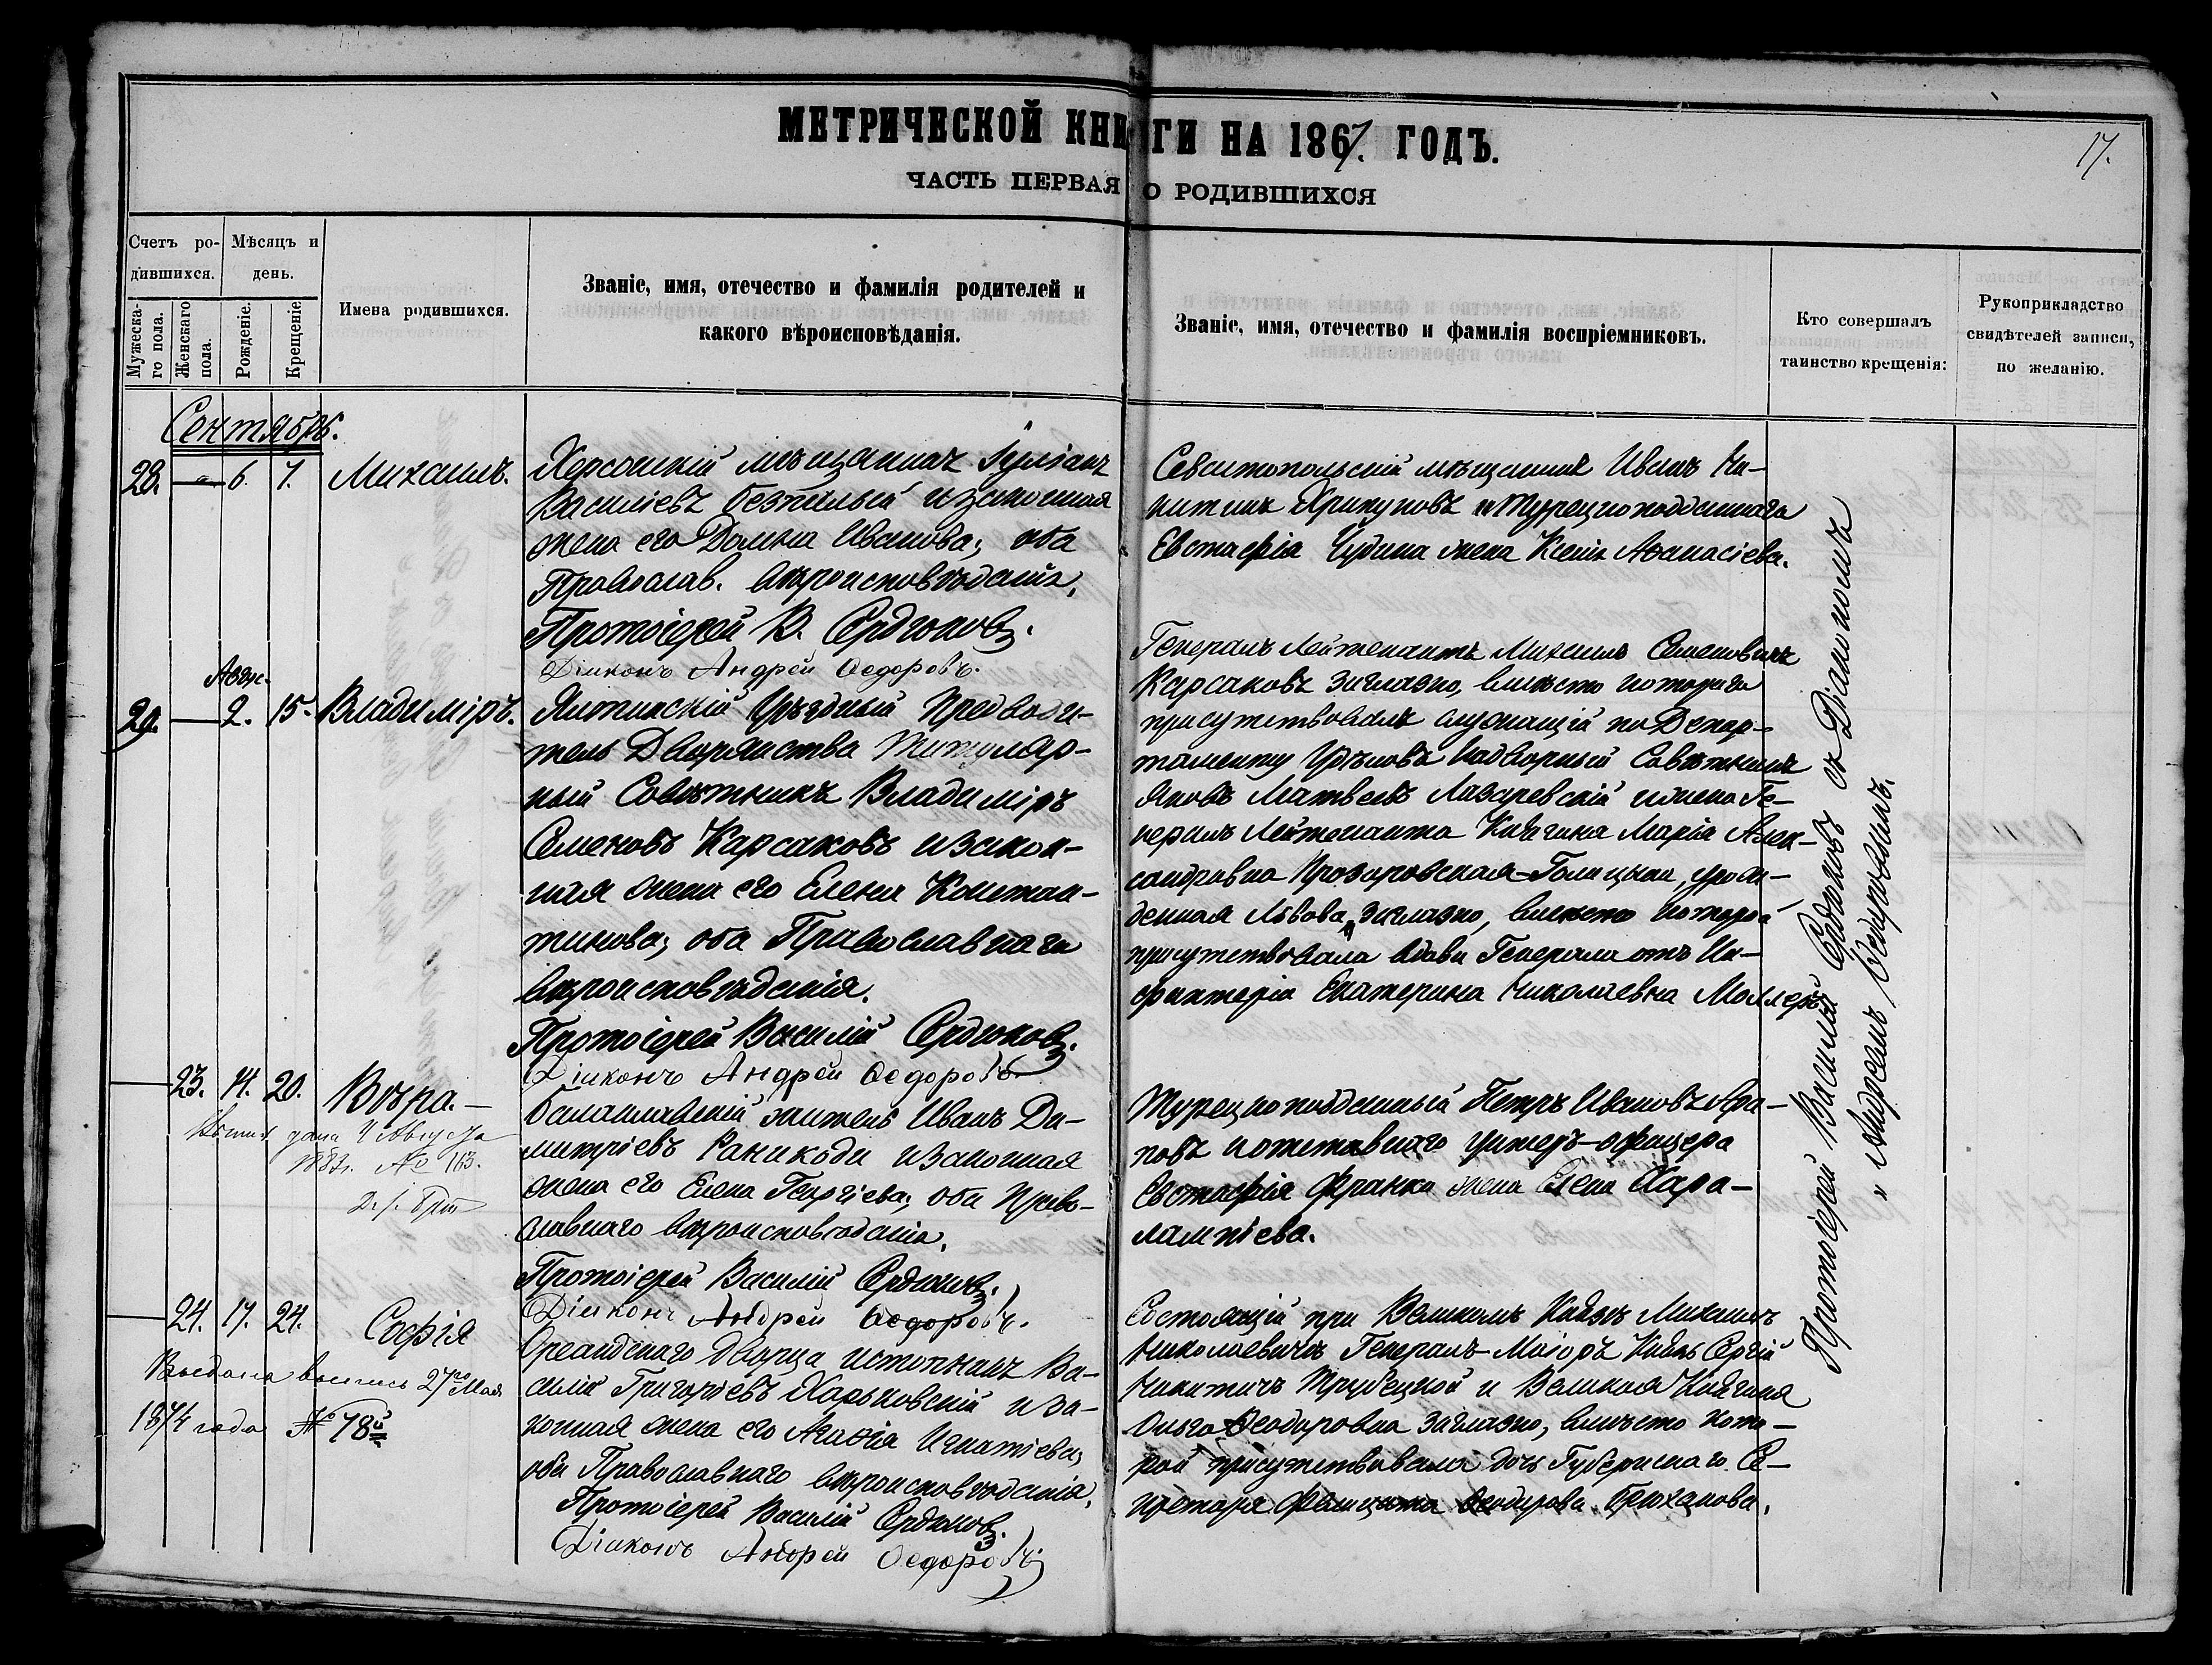 МЕТРИЧЕСКОЙ КНИГИ НА 1867. ГОДЪ.
17.
ЧАСТЬ ПЕРВАЯ О РОДИВШИХСЯ
Счетъ ро-
дившихся.
Мужеска-
го пола.
Женскаго
пола.
Мѣсяцъ и
день.
Рожденіе.
Крещеніе.
Имена родившихся.
Званіе, имя, отечество и фамилія родителей и
какого вѣроисповѣданія.
Званіе, имя, отечество и фамилія воспріемниковъ.
Кто совершалъ
таинство крещенія:
Рукоприкладство
свидѣтелей записи,
по желанію.
Сентябрь.
28. — 6. 7. Михаилъ.
Херсонскій мѣщанинъ Іуліанъ
Василіевъ и законная
жена его Домна Иванова; оба
Православ. вѣроисповѣданія.
Протоіерей В. Сердюковъ.
Діаконъ Андрей Ѳедоровъ.
Севастопольскій мѣщанинъ Иванъ Ни-
китинъ и Турецкоподданнаго
Евстафія жена Ксенія Аѳанасіева.
Авгус.
29. — 2. 15. Владиміръ.
Ялтинскій Уѣздный Предводи-
тель Дворянства Титуляр-
ный Совѣтникъ Владиміръ
Семеновъ Карсаковъ и закон-
ная жена его Елена Констан-
тинова; оба Православнаго
вѣроисповѣданія.
Протоіерей Василій Сердюковъ.
Діаконъ Андрей Ѳедоровъ.
Генералъ Лейтенантъ Михаилъ Семеновичъ
Карсаковъ заглазно, вмѣсто котораго
присутствовалъ служащій по Депар-
таменту Удѣловъ Надворный Совѣтникъ
Яковъ Матвеевъ Лазаревскій и жена Ге-
нералъ Лейтенанта Княгиня Марія Алек-
сандровна Прозоровская-Голицына, урож-
денная Львова, заглазно, вмѣсто которой
присутствовала вдова Генерала отъ Ин-
фантеріи Екатерина Николаевна Моллеръ
— 23. 14. 20. Вѣра. —
дана 4 Августа
1883г. № 163.
Балаклавскій житель Иванъ Ди-
митріевъ и законная
жена его Елена Георгіева; оба Право-
славнаго вѣроисповѣданія.
Протоіерей Василій Сердюковъ.
Діаконъ Андрей Ѳедоровъ.
Турецкоподданный Петръ Ивановъ Ара-
повъ и отставнаго унтеръ-офицера
Евстафія Франка жена Елена Хара-
лампіева.
— 24. 17. 24. Софія
Выдана выпись 27го Мая
1874 года № 78й
Ореандскаго дворца истопникъ Ва-
силій Григоріевъ Харьковскій и за-
конная жена его Агафія Игнатіева,
оба Православнаго вѣроисповѣданія.
Протоіерей Василій Сердюковъ.
Діаконъ Андрей Ѳедоровъ.
Состоящій при Великомъ Князѣ Михаилѣ
Николаевичѣ Генералъ-Маіоръ Князь Сергій
Никитичъ Трубецкой и Великая Княгиня
Ольга Ѳеодоровна заглазно, вмѣсто кото-
рой присутствовала дочь Губернскаго Се-
кретаря Фелицата Ѳеодорова Брюханова.
Протоіерей Василій Сердюковъ съ Діакономъ
„ Андреемъ Ѳедоровымъ.